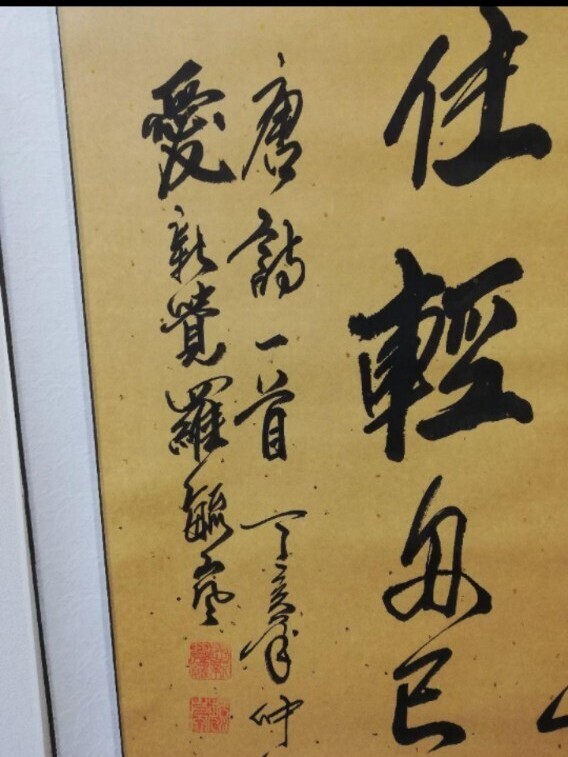 住輕舟已
唐詩一首丁亥年仲
愛新覺羅毓嵐